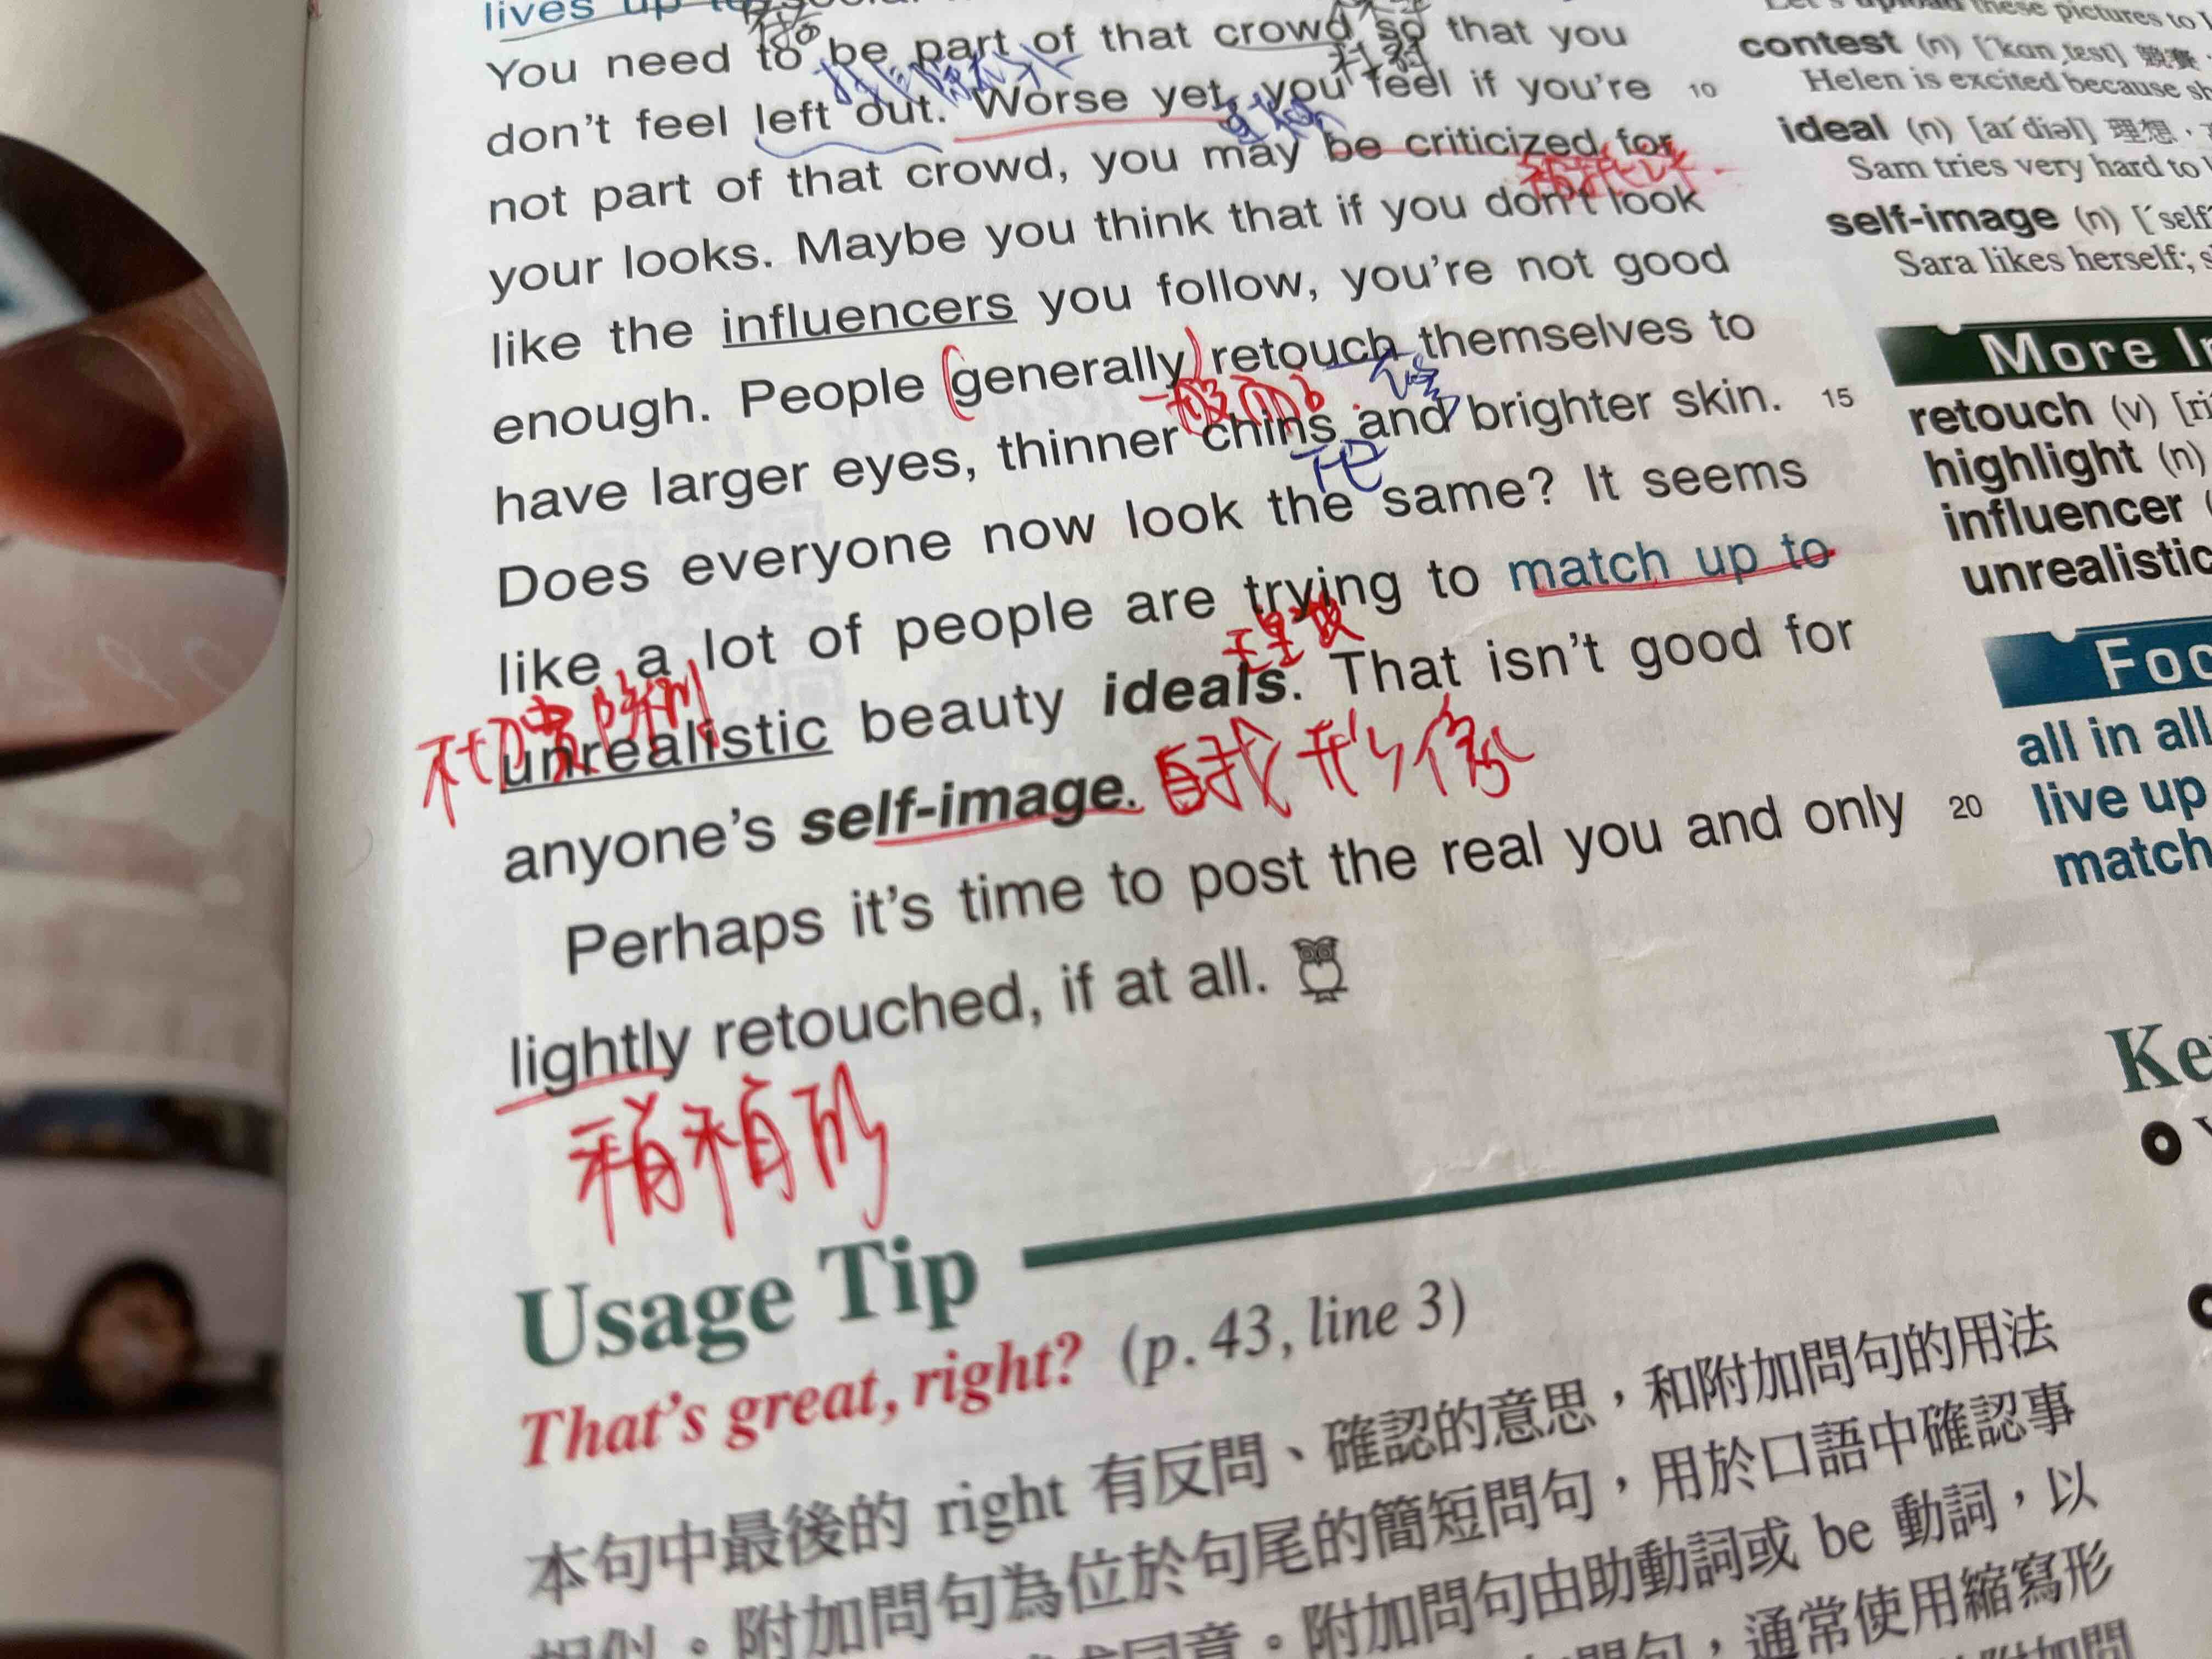 lives up to
You need to be part of that crowd so that you
don't feel left out. Worse yet, you feel if you're 10
not part of that crowd, you may be criticized for
your looks. Maybe you think that if you don't look
like the influencers you follow, you're not good
enough. People (generally) retouch themselves to
一般的
修
have larger eyes, thinner chins and brighter skin. 15
下巴
Does everyone now look the same? It seems
like a lot of people are trying to match up to
理想
不切實際的
unrealistic beauty ideals. That isn't good for
anyone's self-image. 自我形像
Perhaps it's time to post the real you and only 20
lightly retouched, if at all.
稍稍的
Usage Tip
That's great, right? (p. 43, line 3)
本句中最後的 right 有反問、確認的意思，和附加問句的用法
相似。附加問句為位於句尾的簡短問句，用於口語中確認事
同意。附加問句由助動詞或 be 動詞，以
問句，通常使用縮寫形
附加問
these pictures to
contest (n) [ˈkɑnˌtɛst] 競賽，
Helen is excited because sh
ideal (n) [aɪˈdiəl] 理想，
Sam tries very hard to
self-image (n) [ˈsɛlf
Sara likes herself; s
More In
retouch (v) [ri
highlight (n)
influencer (
unrealistic
Foc
all in all
live up
match
Ke